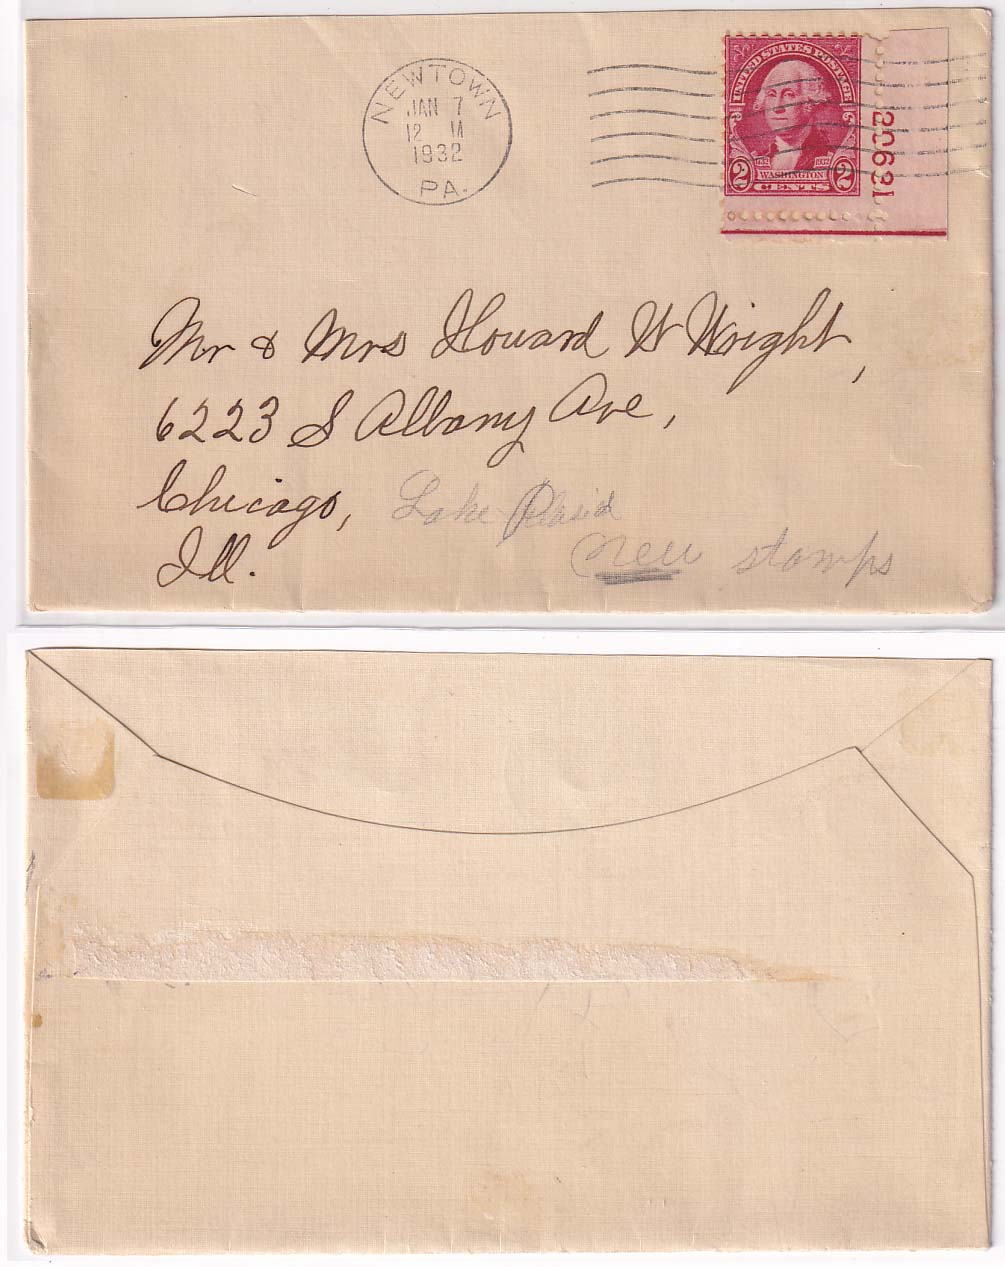 NEWTOWN
JAN 7
12 M
1932
PA.
UNITED STATES POSTAGE
1732 1932
2 WASHINGTON 2
CENTS
20631
Mr & Mrs Howard W Wright,
6223 S Albany Ave,
Chicago, Lake Placid
Ill. new stamps